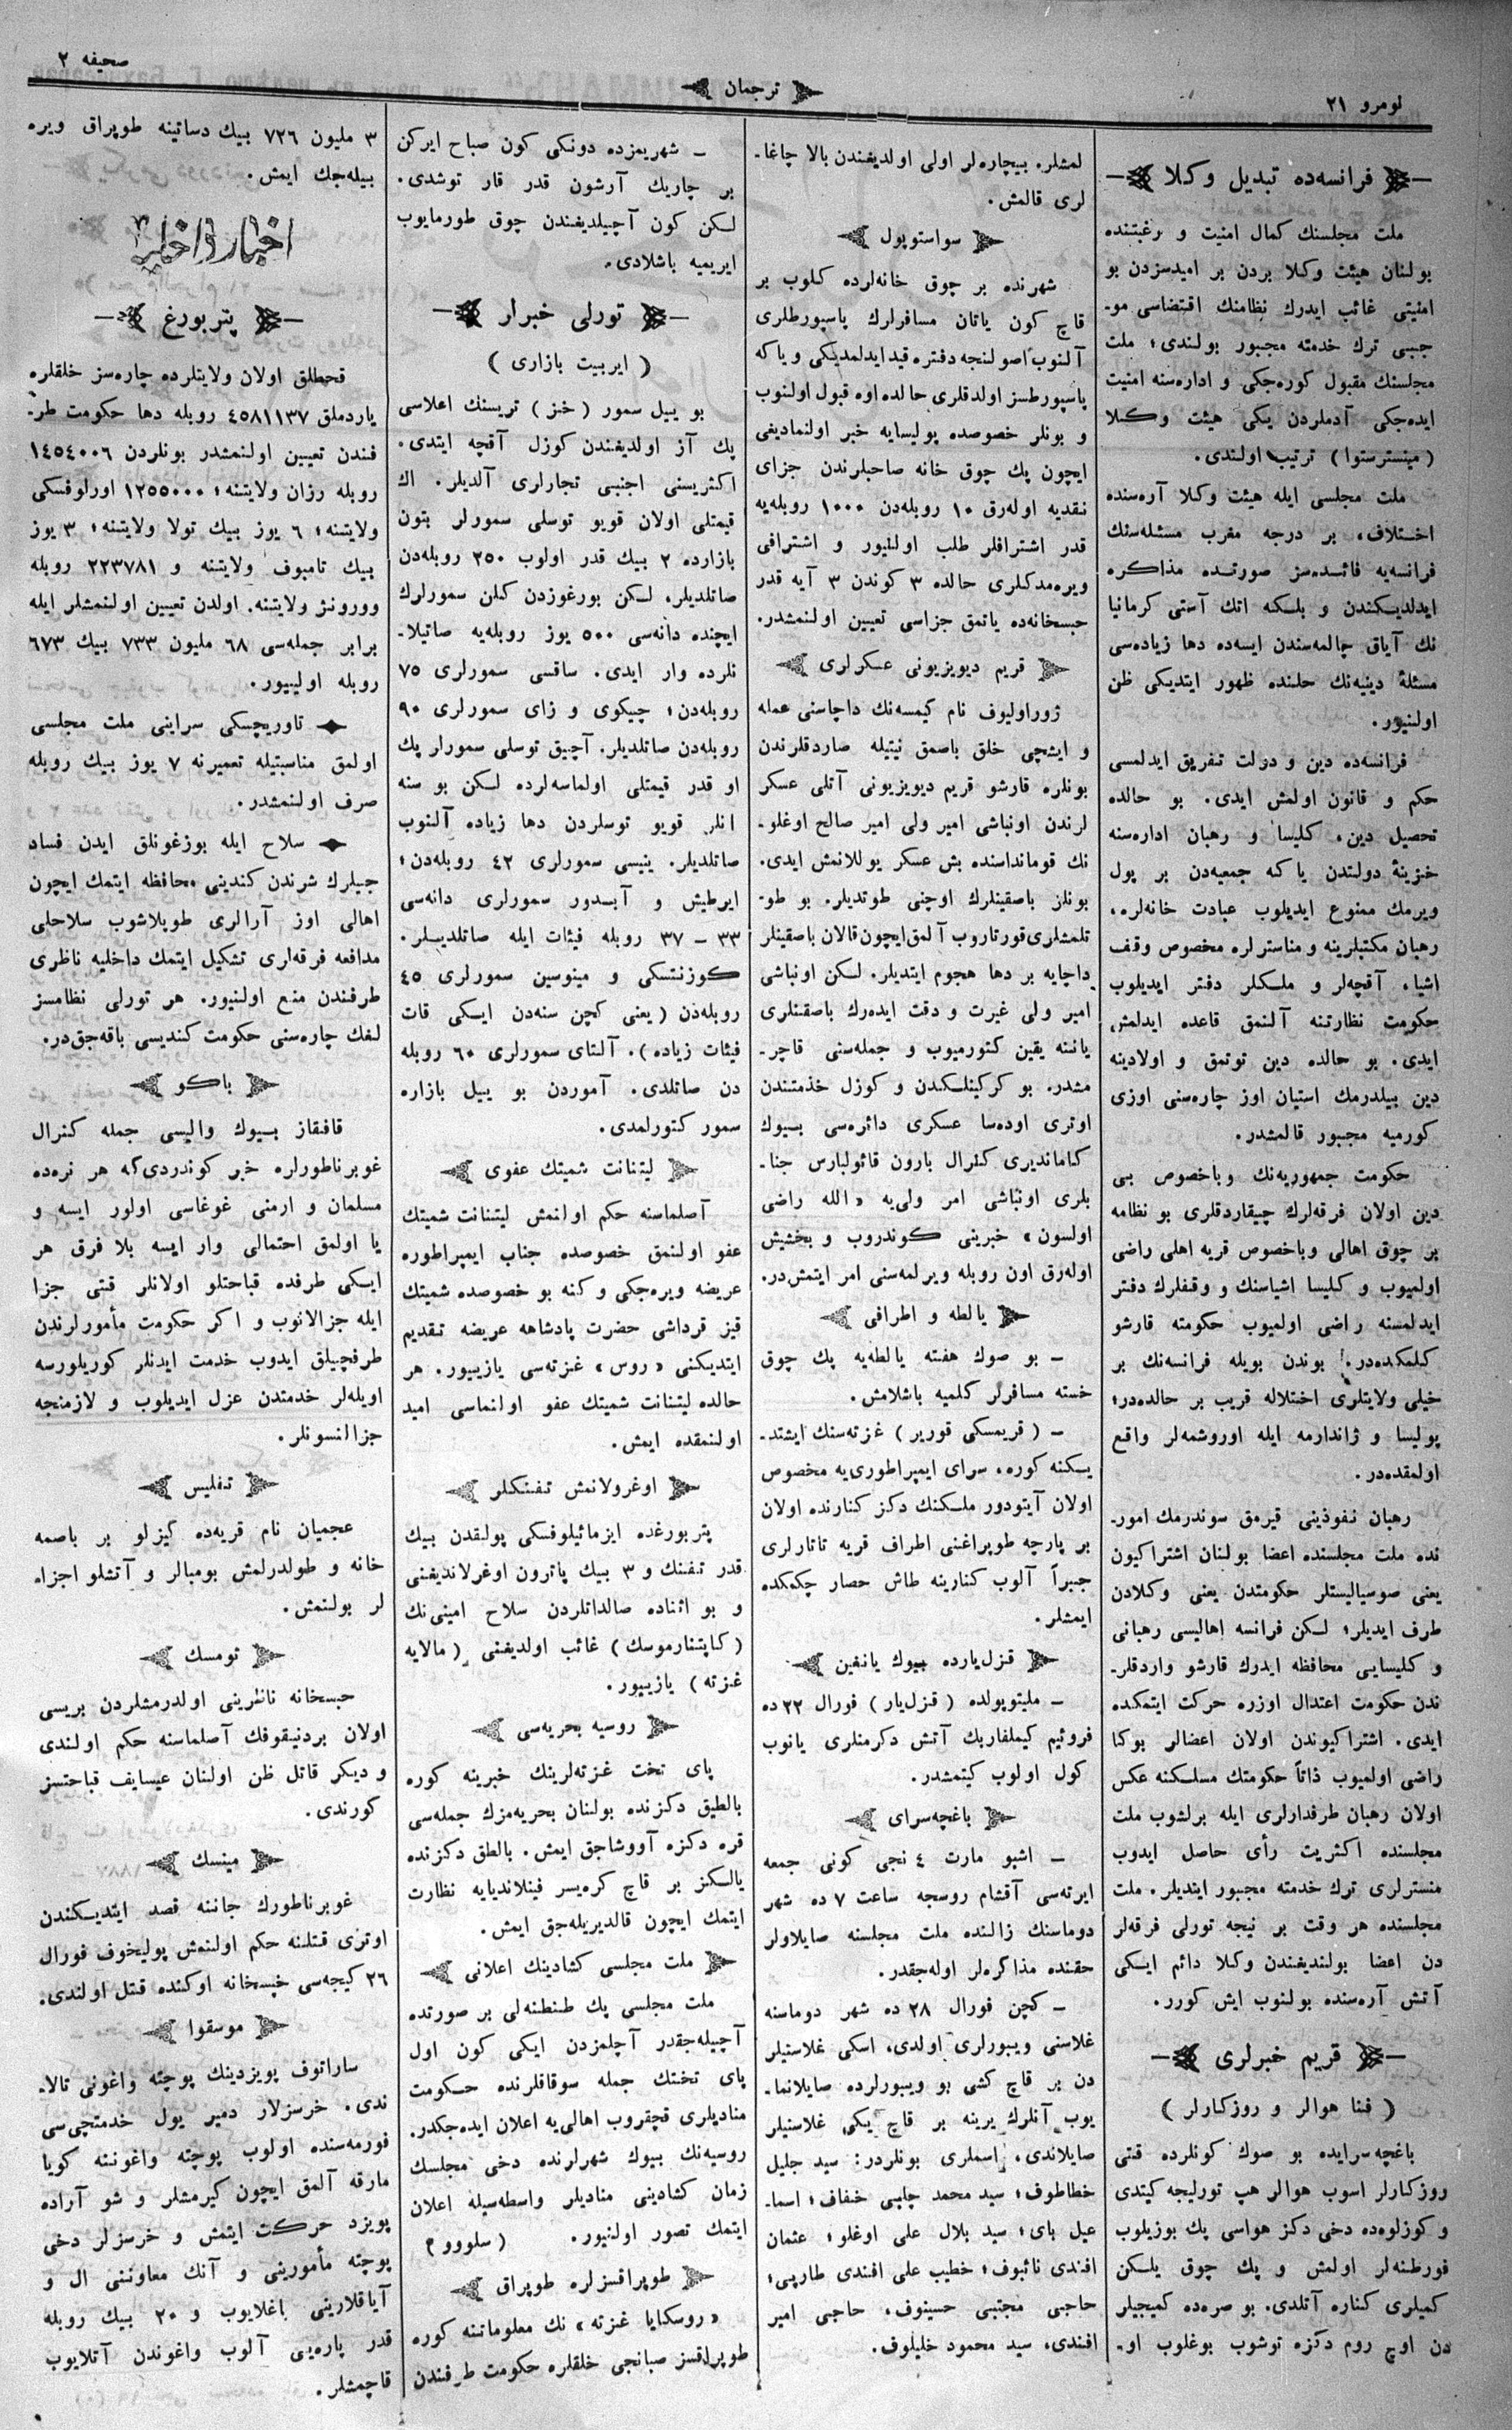 نومرو ٢١
ترجمان
صحیفه ٢
فرانسه‌ده تبدیل وکلا
ملت مجلسنك کمال امنیت و رغبتنده
بولنان هیئت وکلا بردن بر امیدسزدن بو
امنیتی غائب ایدرك نظامنك اقتضاسی مو-
جبی ترك خدمته مجبور بولندی؛ ملت
مجلسنك مقبول کوره‌جکی و اداره‌سنه امنیت
ایده‌جکی آدملردن یکی هیئت وکلا
(مینسترستوا) ترتیب اولندی.
ملت مجلسی ایله هیئت وکلا آره‌سنده
اختلاف، بر درجه مغرب مسئله‌سنك
فرانسه‌یه فائده‌سز صورتده مذاکره
ایدلدیکندن و بلکه اتك آستی کرمانیا
نك آیاق چالمه‌سندن ایسه‌ده دها زیاده‌سی
مسئلهٔ دینیه‌نك حلنده ظهور ایتدیکی ظن
اولنیور.
فرانسه‌ده دین و دولت تفریق ایدلمسی
حکم و قانون اولمش ایدی. بو حالده
تحصیل دین، کلیسا و رهبان اداره‌سنه
خزینهٔ دولتدن یا که جمعیه‌دن بر پول
ویرمك ممنوع ایدیلوب عبادت خانه‌لره،
رهبان مکتبلرینه و مناسترلره مخصوص وقف
اشیا، آقچه‌لر و ملکلر دفتر ایدیلوب
حکومت نظارتنه آلنمق قاعده ایدلمش
ایدی. بو حالده دین توتمق و اولادینه
دین بیلدرمك استیان اوز چاره‌سنی اوزی
کورمیه مجبور قالمشدر.
حکومت جمهوریه‌نك وباخصوص بی
دین اولان فرقه‌لرك چیقاردقلری بو نظامه
بر چوق اهالی وباخصوص قریه اهلی راضی
اولمیوب و کلیسا اشیاسنك و وقفلرك دفتر
ایدلمسنه راضی اولمیوب حکومته قارشو
کلمکده‌در. بوندن بویله فرانسه‌نك بر
خیلی ولایتلری اختلاله قریب بر حالده‌در؛
پولیسا و ژاندارمه ایله اوروشمه‌لر واقع
اولمقده‌در.
رهبان نفوذینی قیرمق سوندرمك امور-
نده ملت مجلسنده اعضا بولنان اشتراکیون
یعنی صوسیالیستلر حکومتدن یعنی وکلادن
طرف ایدیلر؛ لکن فرانسه اهالیسی رهبانی
و کلیسایی محافظه ایدرك قارشو واردقلر-
ندن حکومت اعتدال اوزره حرکت ایتمکده
ایدی. اشتراکیوندن اولان اعضالر بوکا
راضی اولمیوب ذاتاً حکومتك مسلکنه عکس
اولان رهبان طرفدارلری ایله برلشوب ملت
مجلسنده اکثریت رأی حاصل ایدوب
منسترلری ترك خدمته مجبور ایتدیلر. ملت
مجلسنده هر وقت بر نیجه تورلی فرقه‌لر
دن اعضا بولندیغندن وکلا دائم ایکی
آتش آره‌سنده بولنوب ایش کورر.
قریم خبرلری
(فنا هوالر و روزکارلر)
باغچه‌سرایده بو صوك کونلرده قتی
روزکارلر اسوب هوالر هپ تورلیجه کیتدی
و کوزلوه‌ده دخی دکز هواسی پك بوزیلوب
فورطنه‌لر اولمش و پك چوق یلکن
کمیلری کناره آتلدی. بو صره‌ده کمیجیلر
دن اوچ روم دکزه توشوب بوغلوب او-
لمشلر. بیچاره‌لر اولی اولدیغندن بالا چاغا-
لری قالمش.
سواستوپول
شهرنده بر چوق خانه‌لرده کلوب بر
قاچ کون یاتان مسافرلرك پاسپورطلری
آلنوب اصولنجه دفتره قید ایدلمدیکی و یا که
پاسپورطسز اولدقلری حالده اوه قبول اولنوب
و بونلر خصوصده پولیسایه خبر اولنمادیغی
ایچون پك چوق خانه صاحبلرندن جزای
نقدیه اوله‌رق ١٠ روبله‌دن ١٠٠٠ روبله‌یه
قدر اشترافلر طلب اولنیور و اشترافی
ویره‌مدکلری حالده ٣ کوندن ٣ آیه قدر
حبسخانه‌ده یاتمق جزاسی تعیین اولنمشدر.
قریم دیویزیونی عسکرلری
ژوراولیوف نام کیمسه‌نك داچاسنی عمله
و ایشجی خلق باصمق نیتیله صاردقلرندن
بونلره قارشو قریم دیویزیونی آتلی عسکر
لرندن اونباشی امیر ولی امیر صالح اوغلو-
نك قومانداسنده بش عسکر یوللانمش ایدی.
بونلر باصقینلرك اوچنی طوتدیلر. بو طو-
تلمشلری قورتاروب آلمق ایچون قالان باصقینلر
داچایه بر دها هجوم ایتدیلر. لکن اونباشی
امیر ولی غیرت و دقت ایده‌رك باصقنلری
یاننه یقین کتورمیوب و جمله‌سنی قاچر-
مشدر. بو کرکینلکندن و کوزل خذمتندن
اوتری اوده‌سا عسکری دائره‌سی بیوك
کاماندیری کنرال بارون قائولبارس جنا-
بلری اونباشی امر ولی‌یه «الله راضی
اولسون» خبرینی کوندروب و بخشیش
اوله‌رق اون روبله ویرلمه‌سنی امر ایتمش‌در.
یالطه و اطرافی
ـ بو صوك هفته یالطه‌یه پك چوق
خسته مسافرلر کلمیه باشلامش.
ـ (قریمسکی قوریر) غزته‌سنك ایشتد-
یکنه کوره، سرای ایمپراطوری‌یه مخصوص
اولان آیتودور ملکنك دکز کنارنده اولان
بر پارچه طوپراغنی اطراف قریه تاتارلری
جبراً آلوب کنارینه طاش حصار چکمکده
ایمشلر.
قزل‌یارده بیوك یانغین
ـ ملیتوپولده (قزل‌یار) فورال ٢٢ ده
فروئیم کیملفاربك آتش دکرمنلری یانوب
کول اولوب کیتمشدر.
باغچه‌سرای
ـ اشبو مارت ٤ نجی کونی جمعه
ایرته‌سی آقشام روسجه ساعت ٧ ده شهر
دوماسنك زالنده ملت مجلسنه صایلاولر
حقنده مذاکره‌لر اوله‌جقدر.
ـ کچن فورال ٢٨ ده شهر دوماسنه
غلاسنی ویبورلری اولدی، اسکی غلاسنیلر
دن بر قاچ کشی بو ویبورلرده صایلانما-
یوب آنلرك یرینه بر قاچ یکی غلاسنیلر
صایلاندی، اسملری بونلردر: سید جلیل
خطاطوف؛ سید محمد چلبی خفاف؛ اسما-
عیل بای؛ سید بلال علی اوغلو؛ عثمان
افندی نائبوف؛ خطیب علی افندی طارپی؛
حاجی مجتبی حسینوف، حاجی امیر
افندی، سید محمود خلیلوف.
ـ شهریمزده دونکی کون صباح ایرکن
بر چاریك آرشون قدر قار توشدی.
لکن کون آچیلدیغندن چوق طورمایوب
ایریمیه باشلادی.
تورلی خبرلر
(ایربیت بازاری)
بو ییل سمور (خز) تریسنك اعلاسی
پك آز اولدیغندن کوزل آقچه ایتدی.
اکثریسنی اجنبی تجارلری آلدیلر. اك
قیمتلی اولان قویو توسلی سمورلر بتون
بازارده ٢ بیك قدر اولوب ٢٥٠ روبله‌دن
صاتلدیلر، لکن بورغوزدن کلن سمورلرك
ایچنده دانه‌سی ٥٠٠ یوز روبله‌یه صاتیلا-
نلرده وار ایدی. ساقسی سمورلری ٧٥
روبله‌دن؛ چیکوی و زای سمورلری ٩٠
روبله‌دن صاتلدیلر. آچیق توسلی سمورلر پك
او قدر قیمتلی اولماسه‌لرده لکن بو سنه
انلر قویو توسلردن دها زیاده آلنوب
صاتلدیلر. ینیسی سمورلری ٤٢ روبله‌دن؛
ایرطیش و آبسدور سمورلری دانه‌سی
٣٣ - ٣٧ روبله فیئات ایله صاتلدیلر.
کوزنتسکی و مینوسین سمورلری ٤٥
روبله‌دن (یعنی کچن سنه‌دن ایکی قات
فیئات زیاده). آلتای سمورلری ٦٠ روبله
دن صاتلدی. آموردن بو ییل بازاره
سمور کتورلمدی.
لیتنانت شمیتك عفوی
آصلماسنه حکم اولانمش لیتنانت شمیتك
عفو اولنمق خصوصده جناب ایمپراطوره
عریضه ویره‌جکی و کنه بو خصوصده شمیتك
قیز قرداشی حضرت پادشاهه عریضه تقدیم
ایتدیکنی «روس» غزته‌سی یازییور. هر
حالده لیتنانت شمیتك عفو اولنماسی امید
اولنمقده ایمش.
اوغرولانمش تفنکلر
پتربورغده ایزمائیلوفسکی پولقدن بیك
قدر تفنك و ٣ بیك پاترون اوغرلاندیغنی
و بو اثناده صالداتلردن سلاح امینی‌نك
(کاپتنارموسك) غائب اولدیغنی (مالایه
غزته) یازییور.
روسیه بحریه‌سی
پای تخت غزته‌لرینك خبرینه کوره
بالطیق دکزنده بولنان بحریه‌مزك جمله‌سی
قره دکزه آووشاجق ایمش. بالطق دکزنده
یالکز بر قاچ کره‌یسر فینلاندیایه نظارت
ایتمك ایچون قالدیریله‌جق ایمش.
ملت مجلسی کشادینك اعلانی
ملت مجلسی پك طنطنه‌لی بر صورتده
آچیله‌جقدر آچلمزدن ایکی کون اول
پای تختك جمله سوقاقلرنده حکومت
منادیلری قچقروب اهالی‌یه اعلان ایده‌جکدر.
روسیه‌نك بیوك شهرلرنده دخی مجلسك
زمان کشادینی منادیلر واسطه‌سیله اعلان
ایتمك تصور اولنیور. (سلووو)
طوپراقسزلره طوپراق
«روسکایا غزته» نك معلوماتنه کوره
طوپراقسز صبانجی خلقلره حکومت طرفندن
٣ ملیون ٧٢٦ بیك دساتینه طوپراق ویره
بیله‌جك ایمش.
اخبار داخلیه
پتربورغ
قحطلق اولان ولایتلرده چاره‌سز خلقلره
یاردملق ٤٥٨١١٣٧ روبله دها حکومت طر-
فندن تعیین اولنمشدر بونلردن ١٤٥٤٠٠٦
روبله رزان ولایتنه؛ ١٢٥٥٠٠٠ اورلوفسکی
ولایتنه؛ ٦ یوز بیك تولا ولایتنه؛ ٣ یوز
بیك تامبوف ولایتنه و ٢٢٣٧٨١ روبله
وورونژ ولایتنه. اولدن تعیین اولنمشلر ایله
برابر جمله‌سی ٦٨ ملیون ٧٣٣ بیك ٦٧٣
روبله اولییور.
تاوریچسکی سراینی ملت مجلسی
اولمق مناسبتیله تعمیرنه ٧ یوز بیك روبله
صرف اولنمشدر.
سلاح ایله بوزغونلق ایدن فساد
جیلرك شرندن کندینی محافظه ایتمك ایچون
اهالی اوز آرالری طوپلاشوب سلاحلی
مدافعه فرقه‌لری تشکیل ایتمك داخلیه ناظری
طرفندن منع اولنیور. هر تورلی نظامسز
لغك چاره‌سنی حکومت کندیسی باقه‌جق‌در.
باکو
قافقاز بیوك والیسی جمله کنرال
غوبرناطورلره خبر کوندردی که هر نره‌ده
مسلمان و ارمنی غوغاسی اولور ایسه و
یا اولمق احتمالی وار ایسه بلا فرق هر
ایکی طرفده قباحتلو اولانلر قتی جزا
ایله جزالانوب و اکر حکومت مأمورلرندن
طرفچیلق ایدوب خدمت ایدنلر کوریلورسه
اویله‌لر خدمتدن عزل ایدیلوب و لازمنجه
جزالنسونلر.
تفلیس
عجمیان نام قریه‌ده گیزلو بر باصمه
خانه و طولدرلمش بومبالر و آتشلو اجزاء
لر بولنمش.
تومسك
حبسخانه ناظرینی اولدرمشلردن بریسی
اولان بردنیقوفك آصلماسنه حکم اولندی
و دیکر قاتل ظن اولنان عیسایف قباحتسز
کورندی.
مینسك
غوبرناطورك جاننه قصد ایتدیکندن
اوتری قتلنه حکم اولنمش پولیخوف فورال
٢٦ کیجه‌سی حبسخانه اوکنده قتل اولندی.
موسقوا
ساراتوف پویزدینك پوچته واغونی تالا-
ندی. خرسزلار دمیر یول خدمتچی‌سی
فورمه‌سنده اولوب پوچته واغوننه کویا
مارقه آلمق ایچون کیرمشلر و شو آراده
پویزد حرکت ایتمش و خرسزلر دخی
پوچته مأمورینی و آنك معاوننی ال و
آیاقلارینی باغلایوب و ٢٠ بیك روبله
قدر پاره‌یی آلوب واغوندن آتلایوب
قاچمشلر.